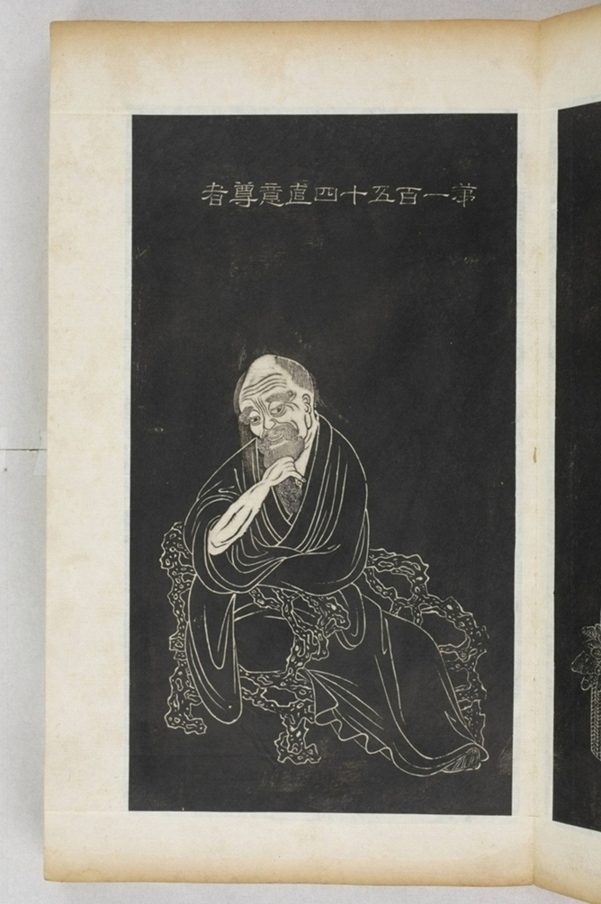 第一百五十四直意尊者